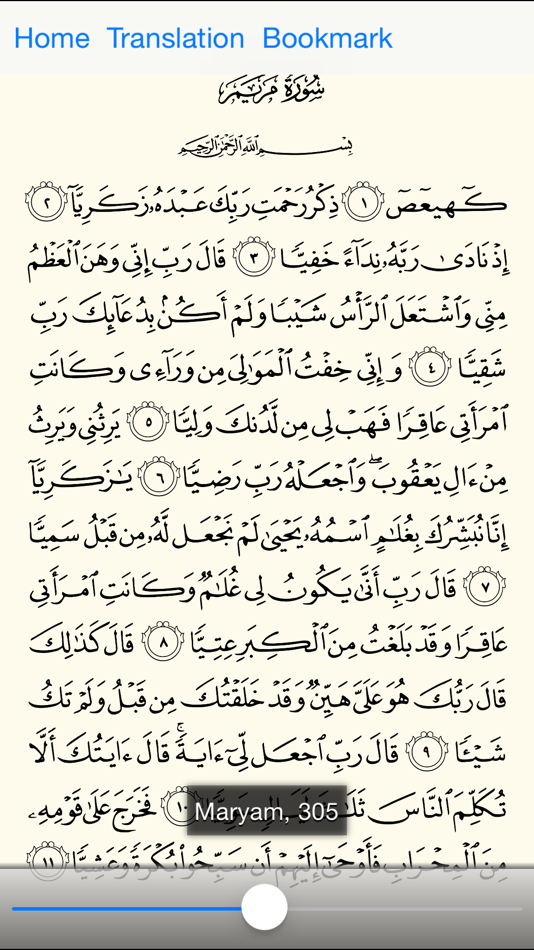 Home Translation Bookmark
سُورَةُ مَرْيَمَ
بِسْمِ ٱللَّهِ ٱلرَّحْمَٰنِ ٱلرَّحِيمِ
كٓهيعٓصٓ ١ ذِكْرُ رَحْمَتِ رَبِّكَ عَبْدَهُۥ زَكَرِيَّآ ٢
إِذْ نَادَىٰ رَبَّهُۥ نِدَآءً خَفِيًّا ٣ قَالَ رَبِّ إِنِّى وَهَنَ ٱلْعَظْمُ
مِنِّى وَٱشْتَعَلَ ٱلرَّأْسُ شَيْبًا وَلَمْ أَكُنۢ بِدُعَآئِكَ رَبِّ
شَقِيًّا ٤ وَإِنِّى خِفْتُ ٱلْمَوَٰلِىَ مِن وَرَآءِى وَكَانَتِ
ٱمْرَأَتِى عَاقِرًا فَهَبْ لِى مِن لَّدُنكَ وَلِيًّا ٥ يَرِثُنِى وَيَرِثُ
مِنْ ءَالِ يَعْقُوبَ ۖ وَٱجْعَلْهُ رَبِّ رَضِيًّا ٦ يَٰزَكَرِيَّآ
إِنَّا نُبَشِّرُكَ بِغُلَٰمٍ ٱسْمُهُۥ يَحْيَىٰ لَمْ نَجْعَل لَّهُۥ مِن قَبْلُ سَمِيًّا
٧ قَالَ رَبِّ أَنَّىٰ يَكُونُ لِى غُلَٰمٌ وَكَانَتِ ٱمْرَأَتِى
عَاقِرًا وَقَدْ بَلَغْتُ مِنَ ٱلْكِبَرِ عِتِيًّا ٨ قَالَ كَذَٰلِكَ
قَالَ رَبُّكَ هُوَ عَلَىَّ هَيِّنٌ وَقَدْ خَلَقْتُكَ مِن قَبْلُ وَلَمْ تَكُ
شَيْـًٔا ٩ قَالَ رَبِّ ٱجْعَل لِّىٓ ءَايَةً ۚ قَالَ ءَايَتُكَ أَلَّا
تُكَلِّمَ ٱلنَّاسَ ١٠ فَخَرَجَ عَلَىٰ قَوْمِهِۦ
Maryam, 305
مِنَ ٱلْمِحْرَابِ فَأَوْحَىٰٓ إِلَيْهِمْ أَن سَبِّحُوا۟ بُكْرَةً وَعَشِيًّا ١١